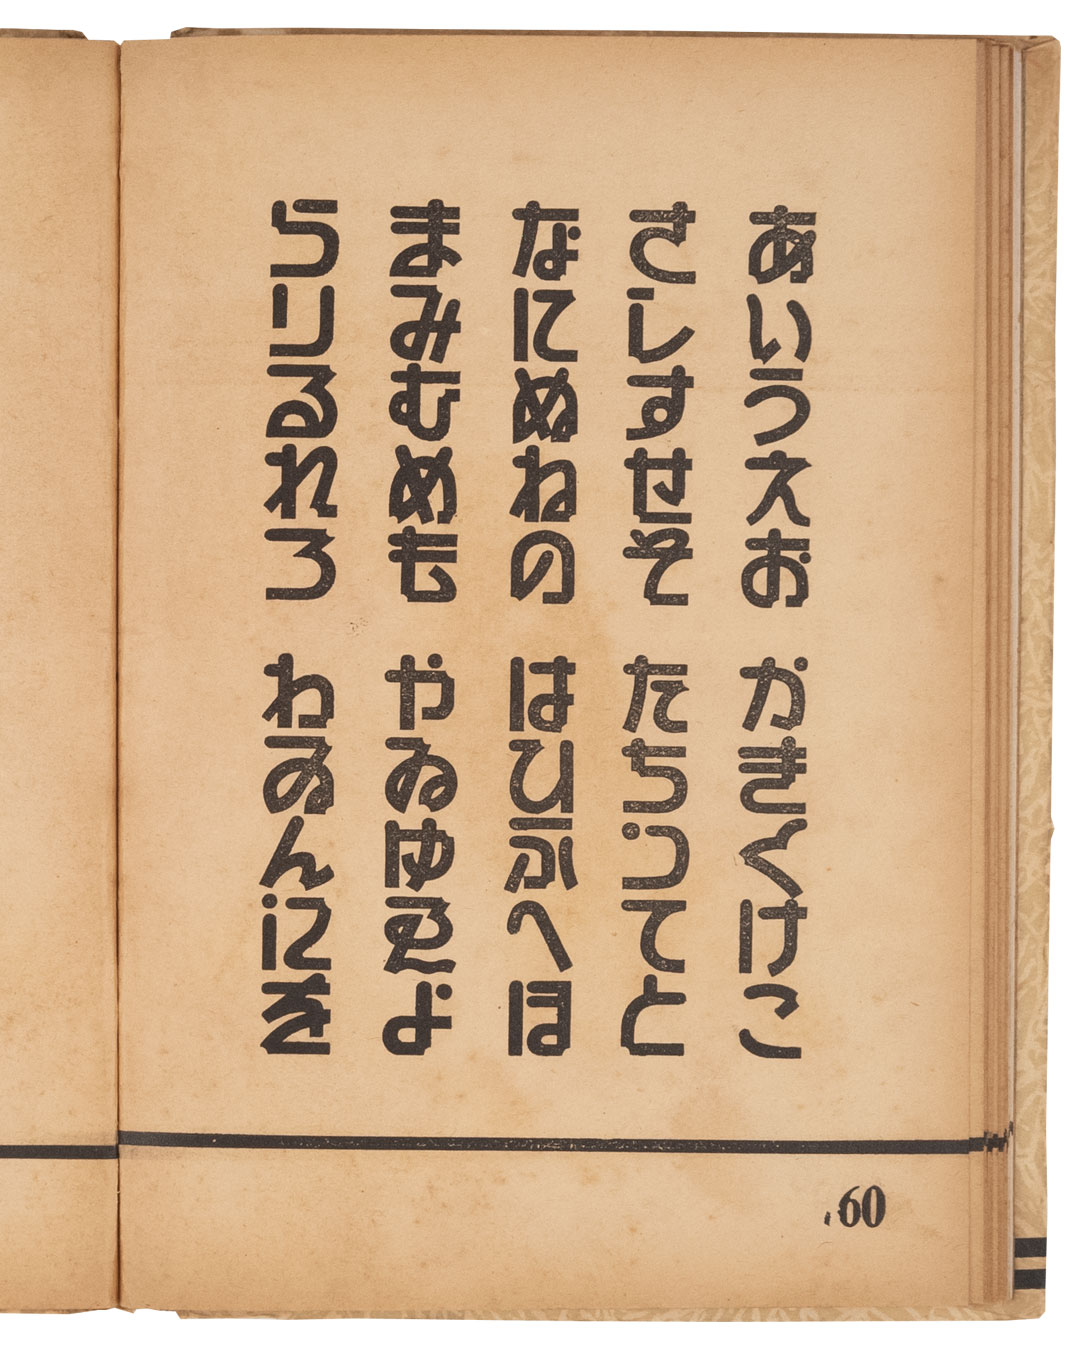 あいうえお かきくけこ
さしすせそ たちつてと
なにぬねの はひふへほ
まみむめも やゐゆゑよ
らりるれろ わゐんにを
60